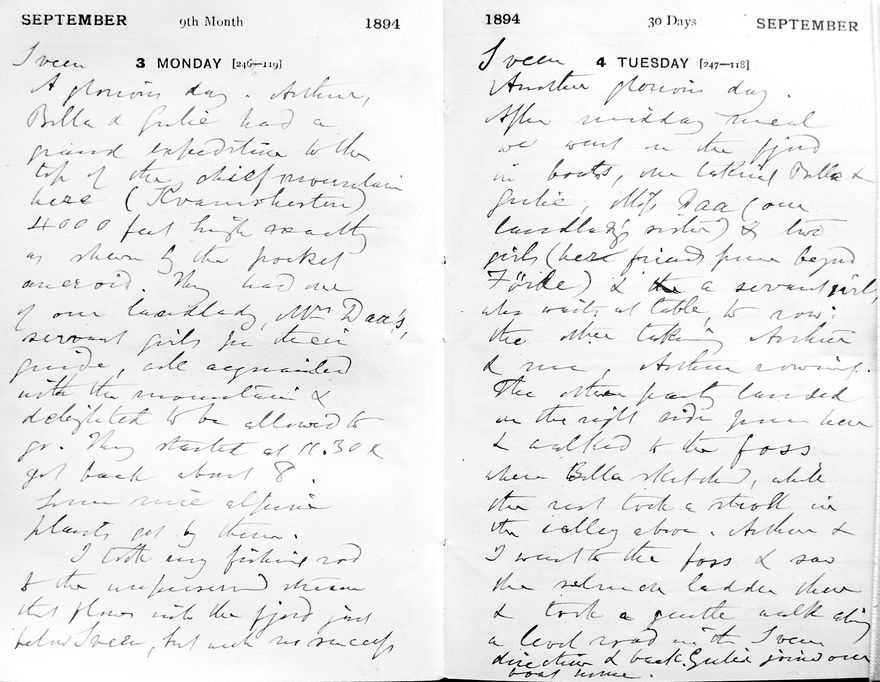 SEPTEMBER 9th Month 1894
Sveen 3 MONDAY [246—119]
A glorious day. Arthur,
Billa & Gulie had a
grand expedition to the
top of the chief mountain
here (Kvamshesten)
4000 feet high exactly
as shewn by the pocket
aneroid. They had one
of our landlady, Mrs Daa's,
servant girls for their
guide, well acquainted
with the mountain &
delighted to be allowed to
go. They started at 11.30 &
got back about 8.
Some nice alpine
plants got by them.
I took my fishing rod
to the unpreserved stream
that flows into the fjord just
below Sveen, but with no success
1894 30 Days SEPTEMBER
Sveen 4 TUESDAY [247—118]
Another glorious day.
After midday meal
we went on the fjord
in boats, one taking Billa &
Gulie, Miss Daa (our
landlady's sister) & two
girls (her friends from beyond
Förde) & a servant girl,
who waits at table, to row;
the other taking Arthur
& me, Arthur rowing.
The other party landed
on the right side from here
& walked to the foss
where Billa sketched, while
the rest took a stroll in
the valley above. Arthur &
I went to the foss & saw
the salmon ladder there
& took a gentle walk along
a level road in the Sveen
direction & back. Gulie joined our
boat home.